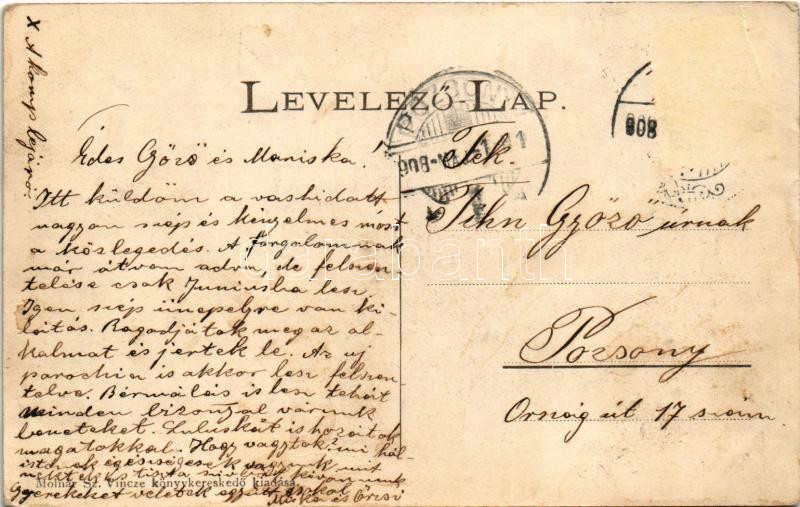 X A komp lejáró
LEVELEZŐ-LAP.
Édes Győző és Mariska!
Itt küldöm a vashidatt
vagyon szép és kényelmes most
a közlegedés. A Forgalomnak
már átvan adva, de felszen-
telése csak Juniusba lesz
Igen szép ünepelyre van ki-
látás. Ragadjátok meg az al-
kalmat és jertek le. Az uj
parochia is akkor lesz felszen
telve. Bérmálás is lesz tehát
minden bizonyal varunk
beneteket. Luluskát is hozzátok
magatokkal. Hogy vagytok? mi hál-
istenek egésségesek vagyunk mit
nektek is tiszta szivből kivánunk
Gyerekeket veletek együtt csokol
Miska és Örzsi
Molnár Sz. Vincze könyvkereskedő kiadása.
POZSONY
908
908
Tek.
Jehn Győző urnak
Pozsony
Ország út 17 szám.
darabanth